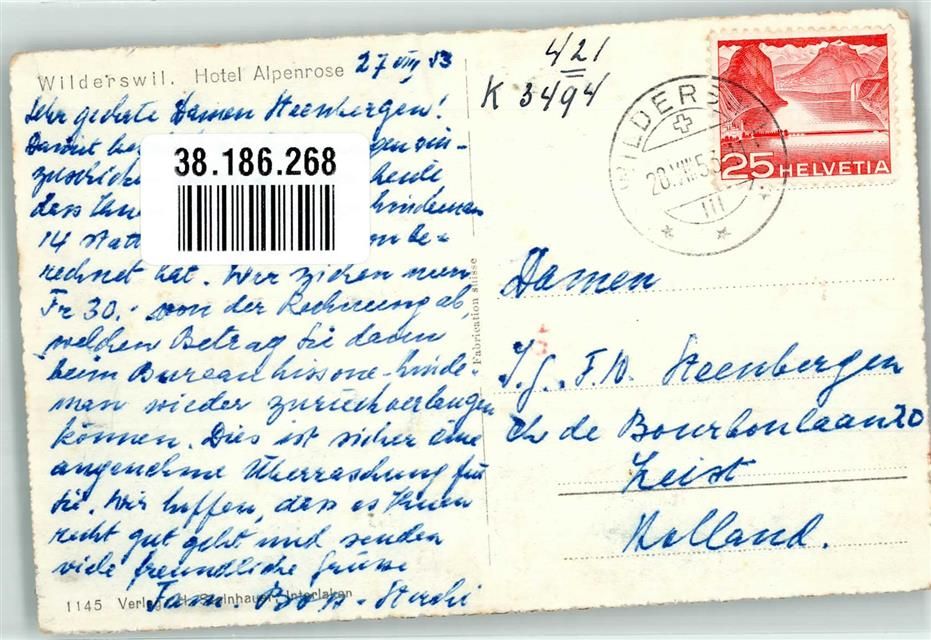 Wilderswil. Hotel Alpenrose
27 VIII 53
Sehr geehrte Damen Steenbergen!
Damit
zuschicke heute
dass Ihne
14 statt be-
rechnet hat. Wir ziehen nun
Fr 30.- von der Rechnung ab,
welchen Betrag Sie dann
beim Bureau Lissone-Linde-
man wieder zurückverlangen
können. Dies ist sicher eine
angenehme Überraschung für
Sie. Wir hoffen, dass es Ihnen
recht gut geht und senden
viele freundliche Grüsse
Fam.
1145 Verlag H. Steinhauer, Interlaken
38.186.268
Fabrication suisse
421
K 3494
WILDERSWIL
28.VIII.53
25 HELVETIA
Damen
Steenbergen
de Bourbonlaan 20
Zeist
Holland.